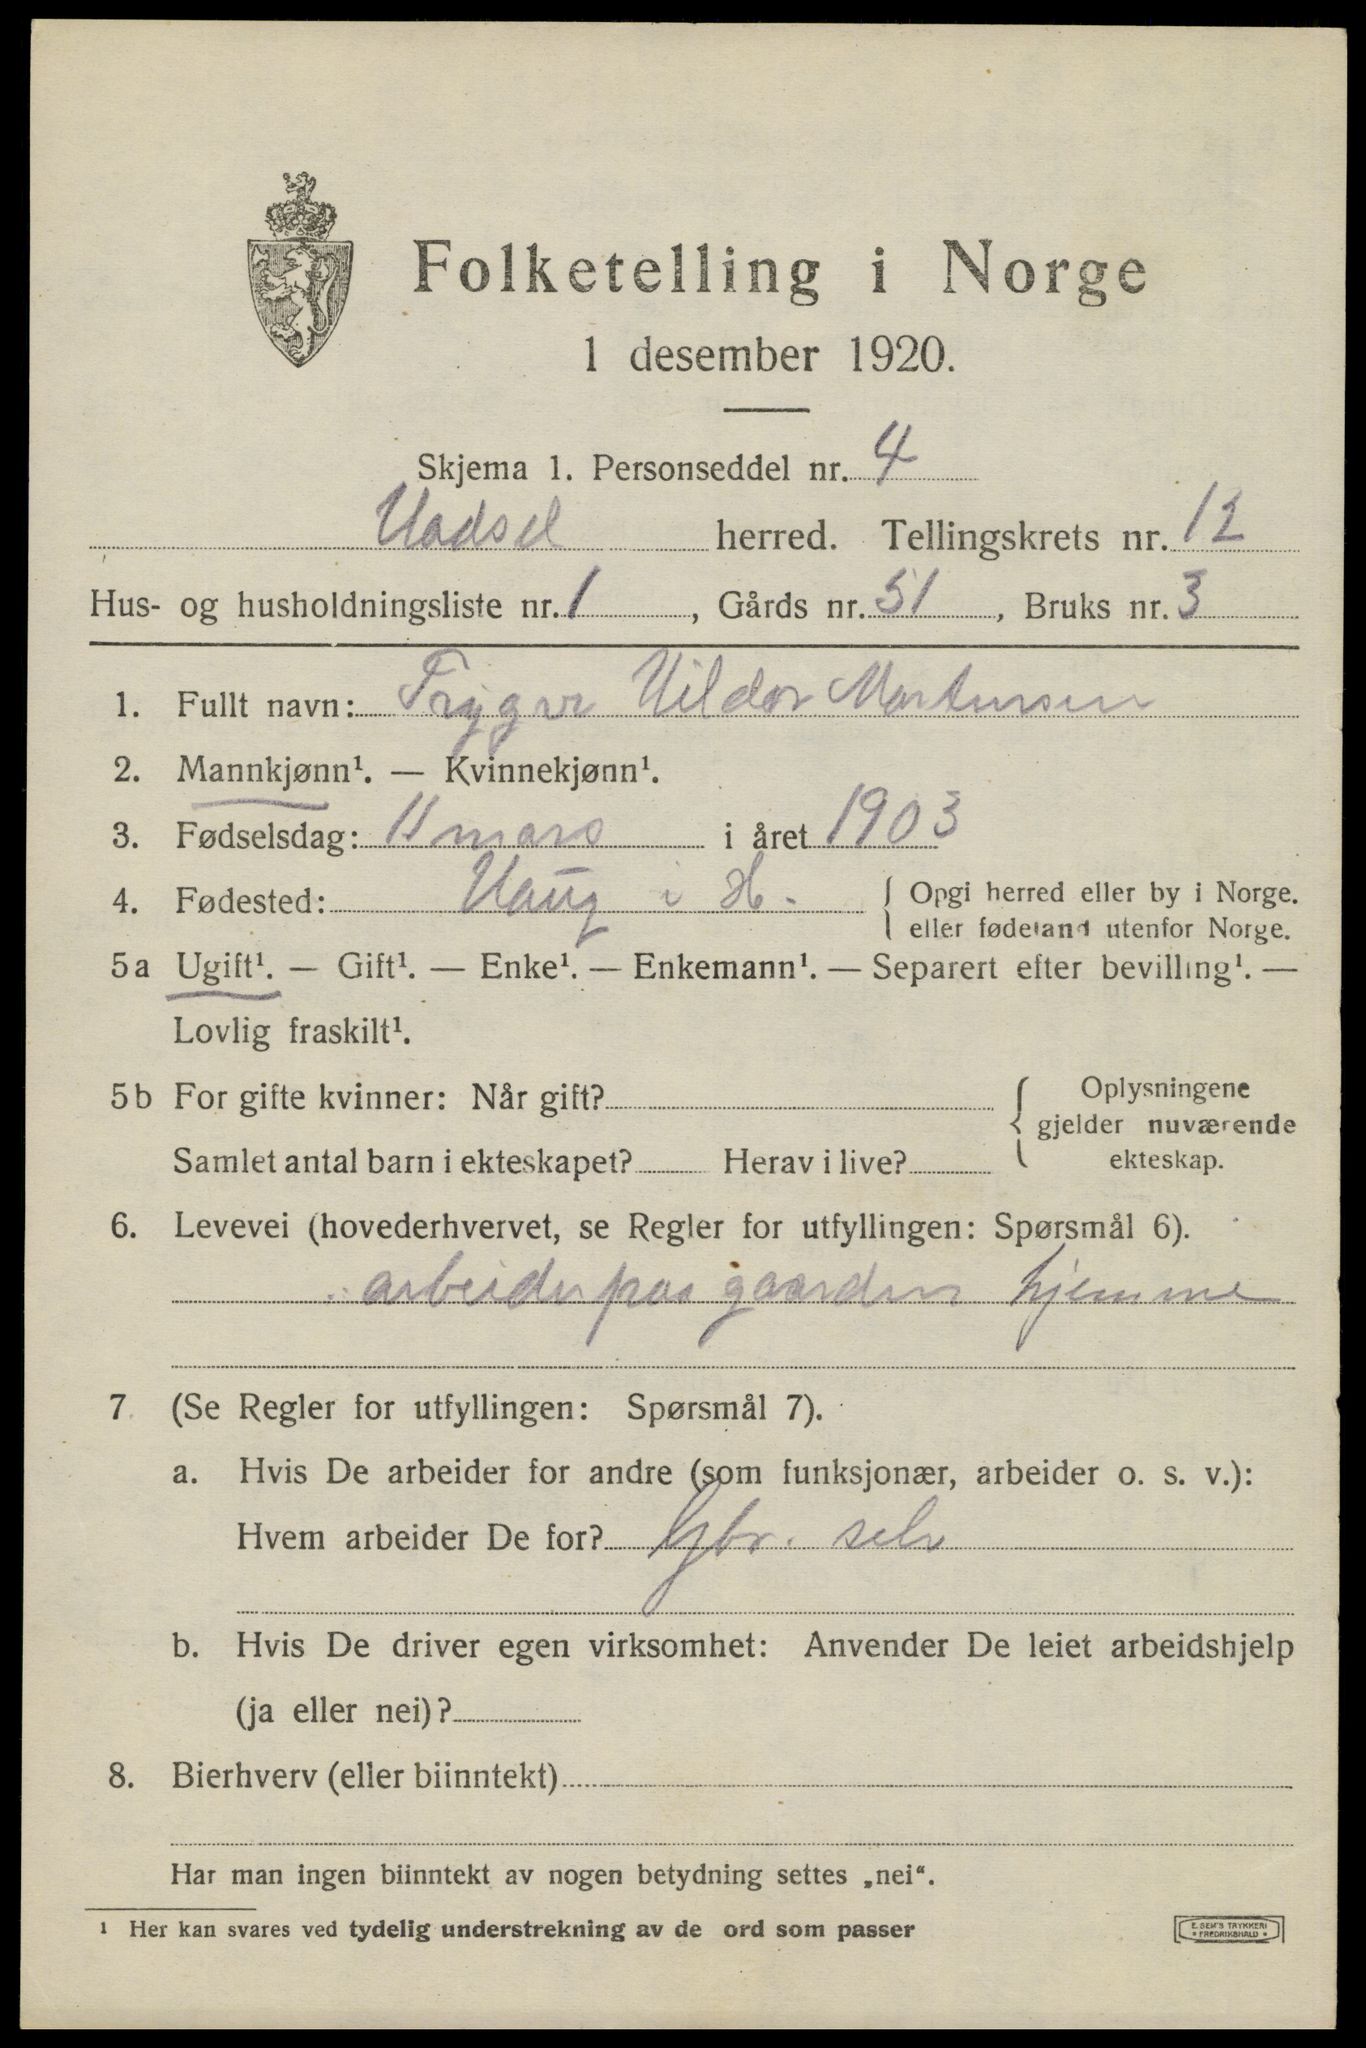 Folketelling i Norge
1 desember 1920.
Skjema 1. Personseddel nr. 4
Hadsel herred. Tellingskrets nr. 12
Hus- og husholdningsliste nr. 1, Gårds nr. 51, Bruks nr. 3
1. Fullt navn: Trygve Hildor Martinsen
2. Mannkjønn¹. — Kvinnekjønn¹.
3. Fødselsdag: 11 mars i året 1903
4. Fødested: Haug i H. { Opgi herred eller by i Norge.
eller fødeland utenfor Norge.
5a Ugift¹. — Gift¹. — Enke¹. — Enkemann¹. — Separert efter bevilling¹. —
Lovlig fraskilt¹.
5b For gifte kvinner: Når gift? { Oplysningene
gjelder nuværende
Samlet antal barn i ekteskapet? Herav i live? ekteskap.
6. Levevei (hovederhvervet, se Regler for utfyllingen: Spørsmål 6).
arbeider paa gaarden hjemme
7. (Se Regler for utfyllingen: Spørsmål 7).
a. Hvis De arbeider for andre (som funksjonær, arbeider o. s. v.):
Hvem arbeider De for? Gbr. selv
b. Hvis De driver egen virksomhet: Anvender De leiet arbeidshjelp
(ja eller nei)?
8. Bierhverv (eller biinntekt)
Har man ingen biinntekt av nogen betydning settes „nei“.
¹ Her kan svares ved tydelig understrekning av de ord som passer
E. SEM'S TRYKKERI
* FREDRIKSHALD *